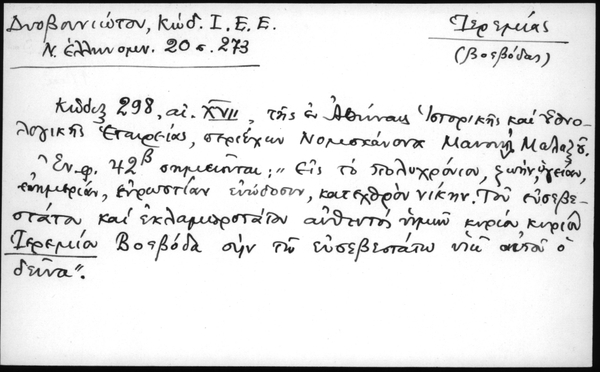 Δυοβουνιώτου, Κώδ. Ι. Ε. Ε.
Ν. Ἑλληνομν. 20 σ. 273
Ἱερεμίας
(Βοεβόδας)
Κῶδιξ 298, αἰ. XVII, τῆς ἐν Ἀθήναις Ἱστορικῆς καὶ Ἐθνο-
λογικῆς Ἑταιρείας, περιέχων Νομοκάνονα Μανουὴλ Μαλαξοῦ.
Ἐν φ. 42β σημειοῦται: „Εἰς τὸ πολυχρόνιον, ζωήν, ὑγείαν,
εὐημερίαν, εὐρωστίαν εὐόδοσιν, κατεχθρὸν νίκην. Τοῦ εὐσεβε-
στάτου καὶ ἐκλαμπροτάτου αὐθεντὸς ἡμῶν κυρίου κυρίου
Ἱερεμίου Βοεβόδα σὺν τῶ εὐσεβεστάτω υἱῶ αὐτοῦ ὁ
δεῖνα".